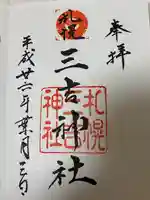 奉拝
札幌
三吉神社
札幌
三吉
神社
平成廿二年葉月三日